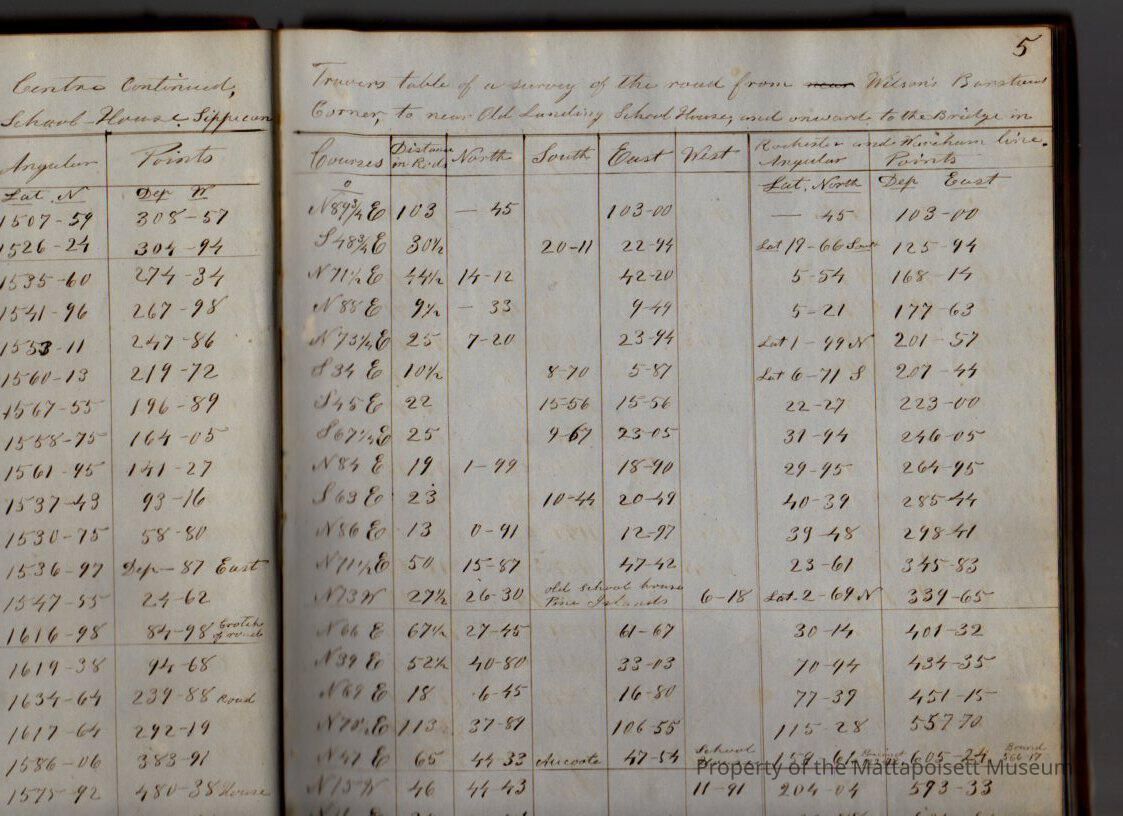 Centre Continued,
School House Sippican
Angular Points
Lat. N Dep W
1507-59 308-57
1526-24 304-94
1535-60 274-34
1541-96 267-98
1553-11 247-86
1560-13 219-72
1567-55 196-89
1558-75 164-05
1561-95 141-27
1537-43 93-16
1530-75 58-80
1536-97 Dep-87 East
1547-55 24-62
1616-98 84-98 Crotch of roads
1619-38 94-68
1634-64 239-88 Road
1617-64 292-19
1586-06 383-91
1575-92 480-38 House
5
Travers table of a survey of the road from near Wilson's Barstow
Corner, to near Old Landing School House, and onward to the Bridge in
Rochester and Wareham line.
Courses Distance in Rods North South East West Angular Points
Lat. North Dep East
N 89¾ E 103 — 45 103-00 — 45 103-00
S 48¾ E 30½ 20-11 22-94 Lat 19-66 South 125-94
N 71½ E 44½ 14-12 42-20 5-54 168-14
N 88 E 9½ — 33 9-49 5-21 177-63
N 73¼ E 25 7-20 23-94 Lat 1-99 N 201-57
S 34 E 10½ 8-70 5-87 Lat 6-71 S 207-44
S 45 E 22 15-56 15-56 22-27 223-00
S 67¼ E 25 9-67 23-05 31-94 246-05
N 84 E 19 1-99 18-90 29-95 264-95
S 63 E 23 10-44 20-49 40-39 285-44
N 86 E 13 0-91 12-97 39-48 298-41
N 71½ E 50 15-87 47-42 23-61 345-83
N 13 W 27½ 26-30 old school house Pine Islands 6-18 Lat. 2-69 N 339-65
N 66 E 67½ 27-45 61-67 30-14 401-32
N 39 E 52½ 40-80 33-03 70-94 434-35
N 69 E 18 6-45 16-80 77-39 451-15
N 70½ E 113 37-89 106-55 115-28 557 70
N 47 E 65 44 33 Aucoota 47-54 School 159-61 605-24 Bound
N 15 W 46 44-43 11-91 204-04 593-33
Property of the Mattapoisett Museum